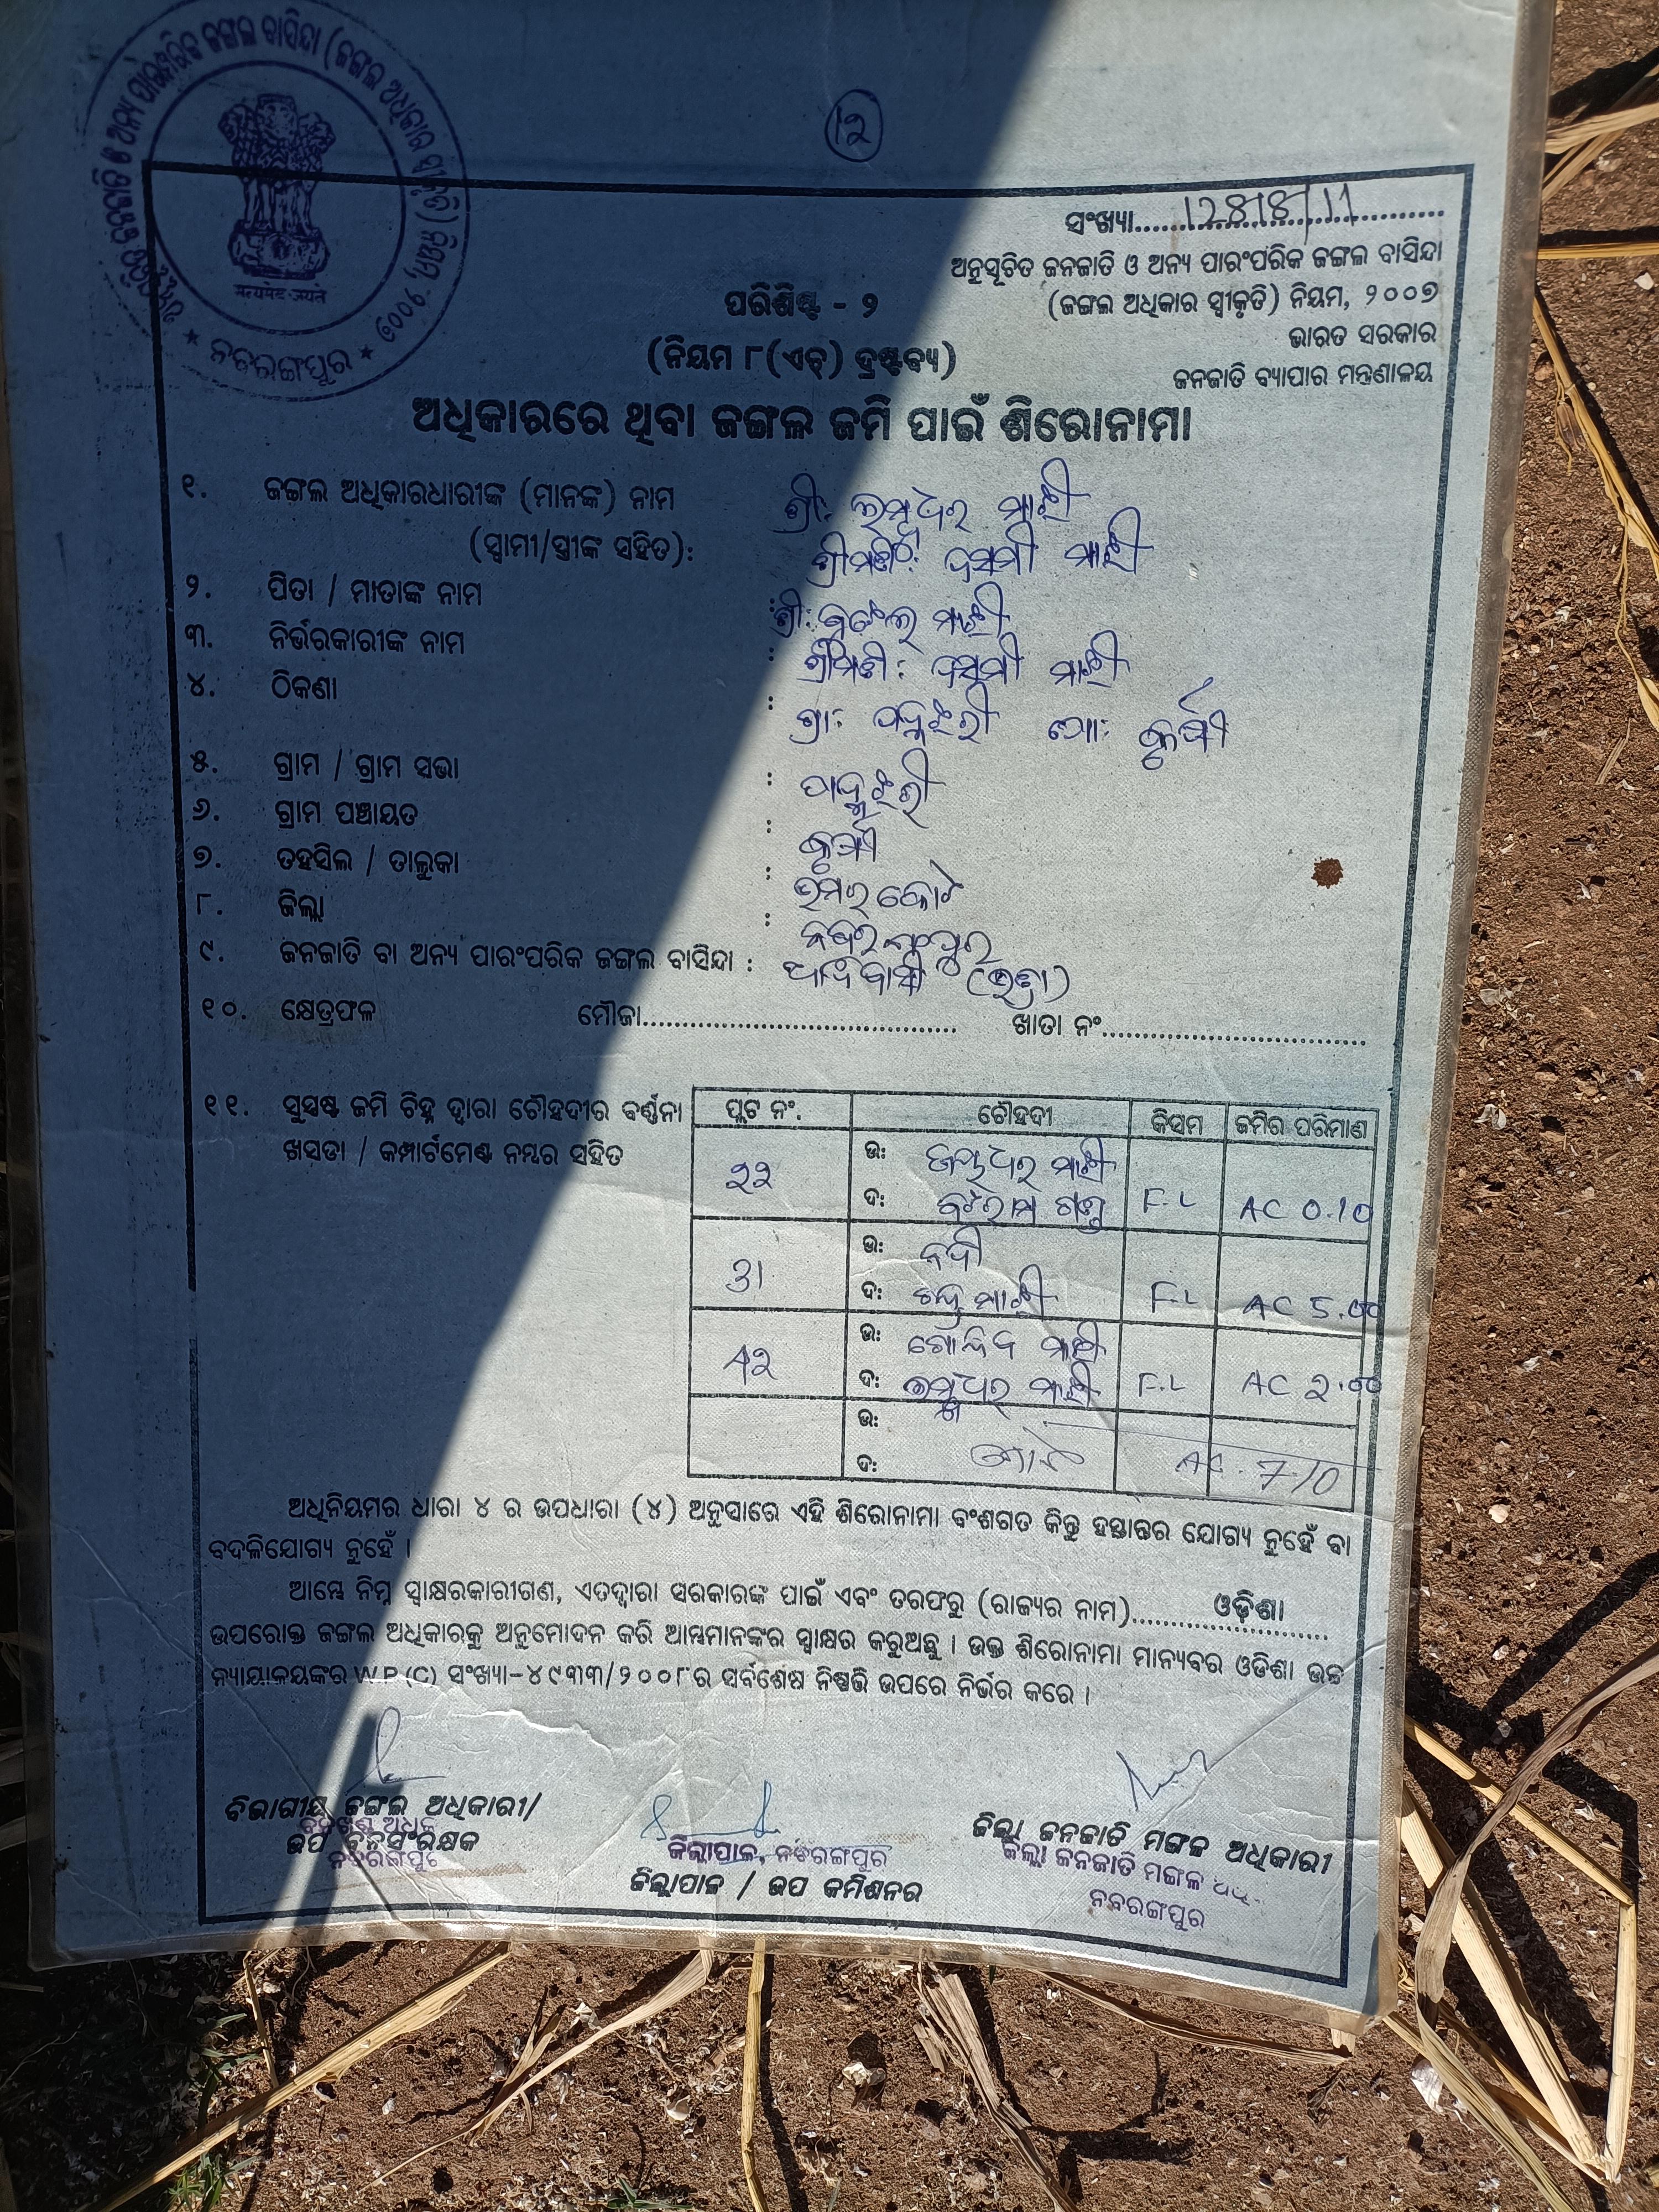 ୧୨
ସଂଖ୍ୟା
ଅନୁସୂଚିତ ଜନଜାତି ଓ ଅନ୍ୟ ପାରଂପରିକ ଜଙ୍ଗଲ ବାସିନ୍ଦା
(ଜଙ୍ଗଲ ଅଧିକାର ସ୍ୱୀକୃତି) ନିୟମ, ୨୦୦୭
ଭାରତ ସରକାର
ଜନଜାତି ବ୍ୟାପାର ମନ୍ତ୍ରଣାଳୟ
ପରିଶିଷ୍ଟ - ୨
(ନିୟମ ୮(ଏଚ୍) ଦ୍ରଷ୍ଟବ୍ୟ)
सत्यमेव जयते
ନବରଙ୍ଗପୁର
ଅଧିକାରରେ ଥିବା ଜଙ୍ଗଲ ଜମି ପାଇଁ ଶିରୋନାମା
୧. ଜଙ୍ଗଲ ଅଧିକାରଧାରୀଙ୍କ (ମାନଙ୍କ) ନାମ ଶ୍ରୀ: ମାଝୀ
(ସ୍ୱାମୀ/ସ୍ତ୍ରୀଙ୍କ ସହିତ): ଶ୍ରୀମତୀ: ଦସମୀ ମାଝୀ
୨. ପିତା / ମାତାଙ୍କ ନାମ : ଶ୍ରୀ: ମାଝୀ
୩. ନିର୍ଭରକାରୀଙ୍କ ନାମ : ଶ୍ରୀମତୀ: ଦସମୀ ମାଝୀ
୪. ଠିକଣା : ଗ୍ରା: ପୋ:
୫. ଗ୍ରାମ / ଗ୍ରାମ ସଭା :
୬. ଗ୍ରାମ ପଞ୍ଚାୟତ :
୭. ତହସିଲ / ତାଲୁକା : ଉମରକୋଟ
୮. ଜିଲ୍ଲା : ନବରଙ୍ଗପୁର
୯. ଜନଜାତି ବା ଅନ୍ୟ ପାରଂପରିକ ଜଙ୍ଗଲ ବାସିନ୍ଦା : ଆଦିବାସୀ
୧୦. କ୍ଷେତ୍ରଫଳ ମୌଜା ଖାତା ନଂ
୧୧. ସୁସ୍ପଷ୍ଟ ଜମି ଚିହ୍ନ ଦ୍ୱାରା ଚୌହଦୀର ବର୍ଣ୍ଣନା
ଖସଡା / କମ୍ପାର୍ଟମେଣ୍ଟ ନମ୍ବର ସହିତ
ପ୍ଲଟ ନଂ. ଚୌହଦୀ କିସମ ଜମିର ପରିମାଣ
ଉ: ମାଝୀ
ଦ: F.L AC 0.10
31 ଉ: ନଦୀ
ଦ: ମାଝୀ F.L AC 5.00
ଉ: ଗୋବିନ୍ଦ ମାଝୀ
ଦ: ମାଝୀ F.L AC 2.00
ଉ:
ଦ: AC. 7.10
ଅଧିନିୟମର ଧାରା ୪ ର ଉପଧାରା (୪) ଅନୁସାରେ ଏହି ଶିରୋନାମା ବଂଶଗତ କିନ୍ତୁ ହସ୍ତାନ୍ତର ଯୋଗ୍ୟ ନୁହେଁ ବା
ବଦଳିଯୋଗ୍ୟ ନୁହେଁ ।
ଆମ୍ଭେ ନିମ୍ନ ସ୍ୱାକ୍ଷରକାରୀଗଣ, ଏତଦ୍ୱାରା ସରକାରଙ୍କ ପାଇଁ ଏବଂ ତରଫରୁ (ରାଜ୍ୟର ନାମ) ଓଡ଼ିଶା
ଉପରୋକ୍ତ ଜଙ୍ଗଲ ଅଧିକାରକୁ ଅନୁମୋଦନ କରି ଆମ୍ଭମାନଙ୍କର ସ୍ୱାକ୍ଷର କରୁଅଛୁ । ଉକ୍ତ ଶିରୋନାମା ମାନ୍ୟବର ଓଡିଶା ଉଚ୍ଚ
ନ୍ୟାୟାଳୟଙ୍କର W.P.(C) ସଂଖ୍ୟା-୪୯୩୩/୨୦୦୮ର ସର୍ବଶେଷ ନିଷ୍ପତ୍ତି ଉପରେ ନିର୍ଭର କରେ ।
ବିଭାଗୀୟ ଜଙ୍ଗଲ ଅଧିକାରୀ/
ଉପ ବନସଂରକ୍ଷକ
ନବରଙ୍ଗପୁର
ଜିଲ୍ଲାପାଳ, ନବରଙ୍ଗପୁର
ଜିଲ୍ଲାପାଳ / ଉପ କମିଶନର
ଜିଲ୍ଲା ଜନଜାତି ମଙ୍ଗଳ ଅଧିକାରୀ
ଜିଲ୍ଲା ଜନଜାତି ମଙ୍ଗଳ
ନବରଙ୍ଗପୁର